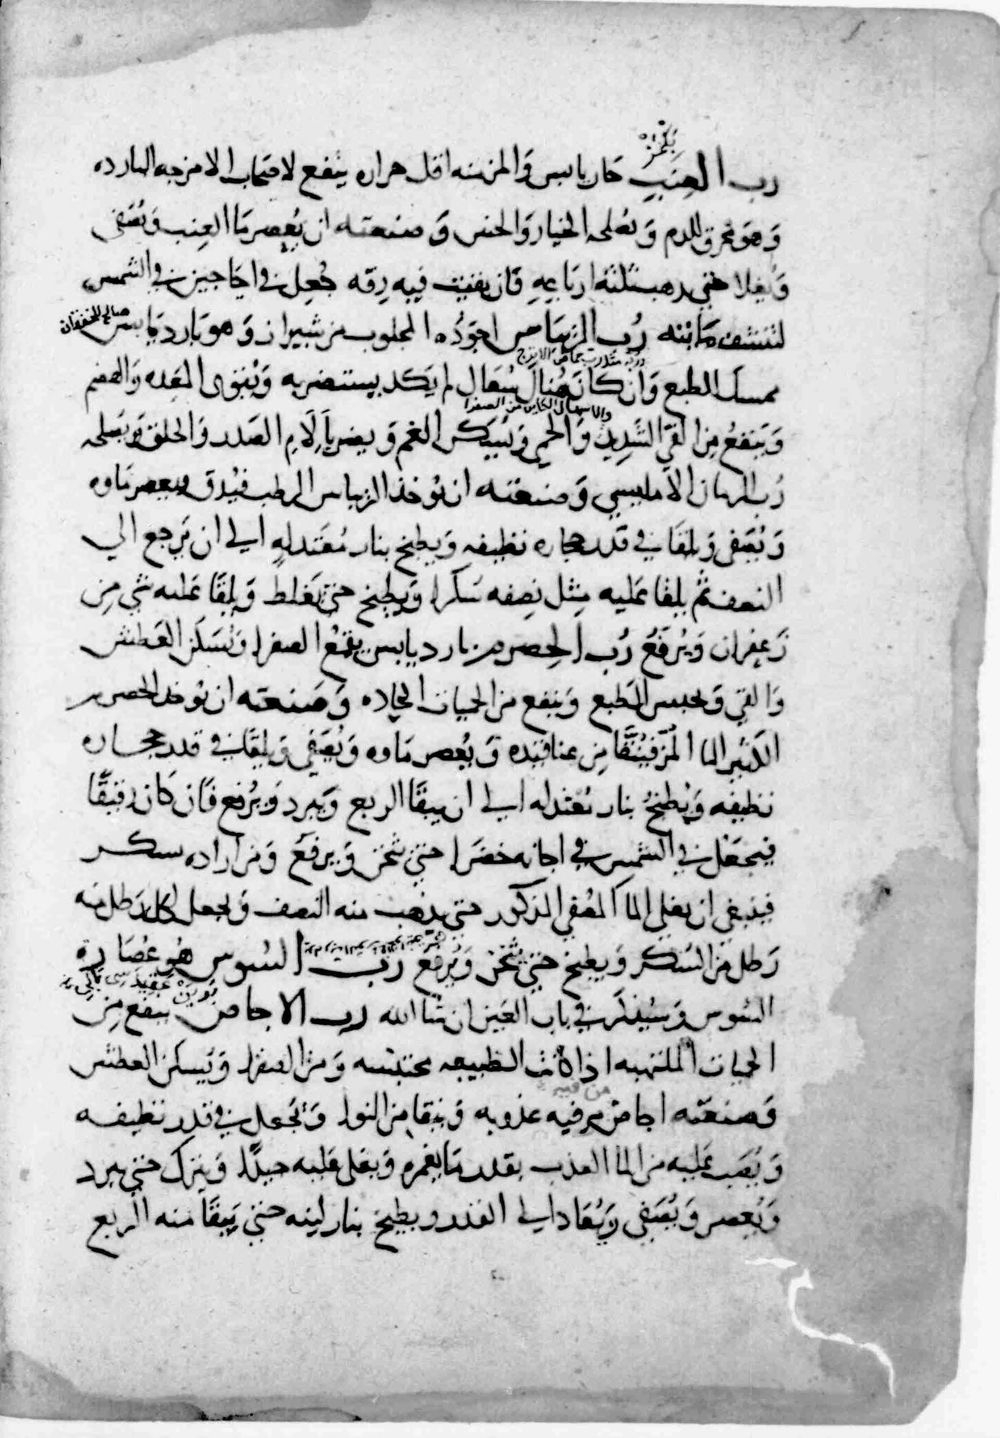 بكمز
رب العنب حار يابس والمز منه اقل حراره ينفع لاصحاب الامزجه البارده
وهو محرق للدم ويصلحه الخيار والخس وصنعته ان يعصر ما العنب ويصفى
ويغلا حتى يذهب ثلثه ارباعه فان بقيت فيه رقه جعل في اجاجين في الشمس
لتنشف مائيته رب الريباس اجوده المجلوب من شيراز وهو بارد يابس صالح للخفقان
ممسك الطبع وان كان هناك سعال لم يكد يستضر به ويقوى المعده والهضم
والاسهال الكاين من الصفرا
وينفع من القي الشديد والحمى ويسكن الغم ويضر بالام الصدر والحلق ويصلحه
رب الرمان الامليسي وصنعته ان يوخذ الريباس الرطب فيدق ويعصر ماوه
ويصفى ويلقا في قدر حجاره نظيفه ويطبخ بنار معتدله الى ان يرجع الى
النصف ثم يلقا عليه مثل نصفه سكرا ويطبخ حتى يغلظ ويلقا عليه شي من
زعفران ويرفع رب الحصرم بارد يابس يقمع الصفرا ويسكن العطش
والقي ويحبس الطبع وينفع من الحميات الحاده وصنعته ان يوخذ الحصرم
الكثير الما المز فينقا من عناقيده ويعصر ماوه ويصفى ويلقا في قدر حجاره
نظيفه ويطبخ بنار معتدله الى ان يبقا الربع ويبرد ويرفع فان كان رقيقا
فيجعل في الشمس في اجانه خضرا حتى يثخن ويرفع ومن اراده بسكر
فينبغى ان يغلي الما المصفى المذكور حتى يذهب منه النصف ويجعل لكل رطل منه
رطل من السكر ويطبخ حتى يثخن ويرفع رب السوس هو عصارة
السوس وسيذكر في باب العين ان شا الله رب الاجاص ينفع من
الحميات الملتهبه اذا كانت الطبيعه محتبسه ومن الصفرا ويسكن العطش
وصنعته اجاص مز فيه عذوبه وينقا من النوا ويجعل في قدر نظيفه
ويصب عليه من الما العذب بقدر ما يغمره ويغلى غليه جيدا ويترك حتى يبرد
ويعصر ويصفى ويعاد الى القدر ويطبخ بنار لينه حتى يبقا منه الربع